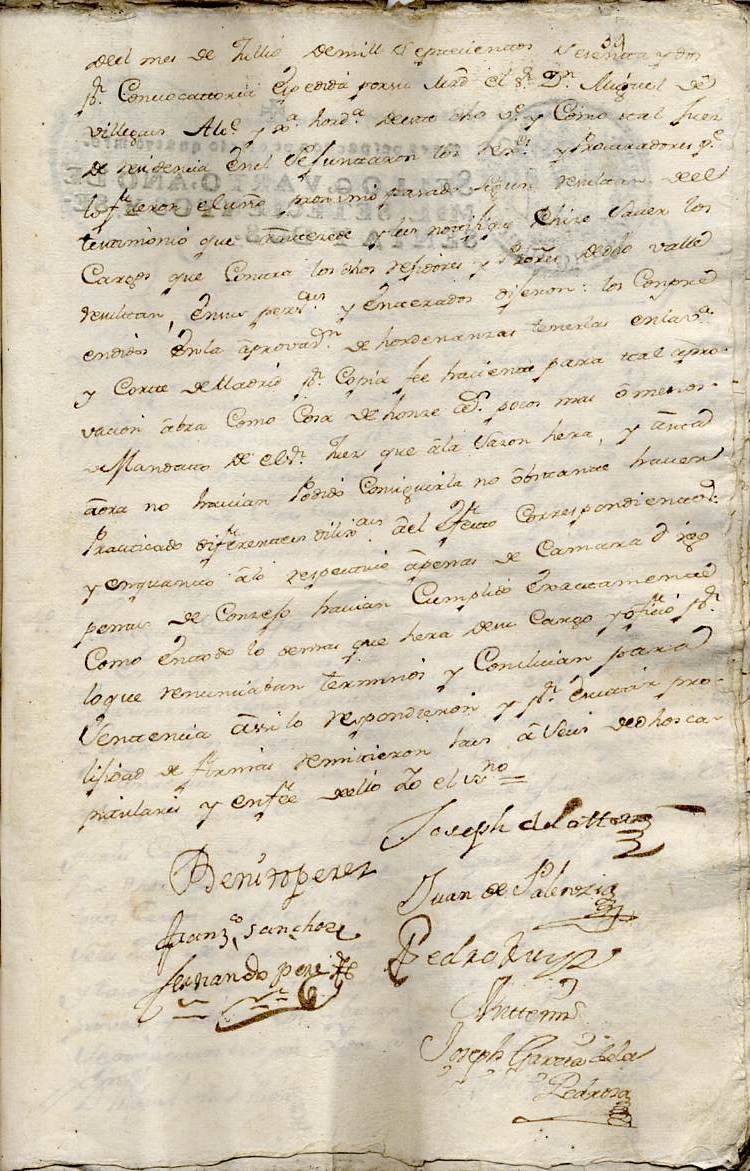 39
del mes de Jullio de mill setecientos sesenta y dos
pr. Convocattoria expedida por su Mrd. el Sr. Dn. Miguel de
Villegas Alce. y Jª hordª de este dho Ve. y Como tal Juez
de residencia en el se juntaron los y Procuradores qe.
lo fueron el año proximo pasado segun resultan de el
testimonio que antecede y les notifique e hize saver los
Cargos que Contra los dhos rejidores y de dho valle
resultan, en sus persas. y enterados dijeron: los Conpre
endidos en la aprovazn. de hordenanzas tenerlas en la
y Corte de Madrid pr. Copia fee haciente para tal apro-
vacion abra Como Cosa de honze as. pocos mas o menos
de Mandatto de el Sr. Juez que a la sazon hera, y asta
aora no havian Podido Conseguirla no obstante haver
Practicado diferentes dilixas. a el efecto Correspondientes
y en quanto a lo respectivo a penas de Camara digo
penas de Conzejo havian Cumplido exactamente
Como en todo lo demas que hera de su Cargo y oficio pr.
lo que renunciaban terminos y Concluian para
sentencia assi lo respondieron y pr. evitar pro-
lijidad de firmas remitieron las a seis de dhos ca-
pitulares y en fee de ello Yo el esno =
Joseph del otero
Benito perez
Juan de Palenzia
Franzco. sanchez
Pedro Ruiz
fernando perez
Antte mi
Joseph Garcia de la
Pedrosa